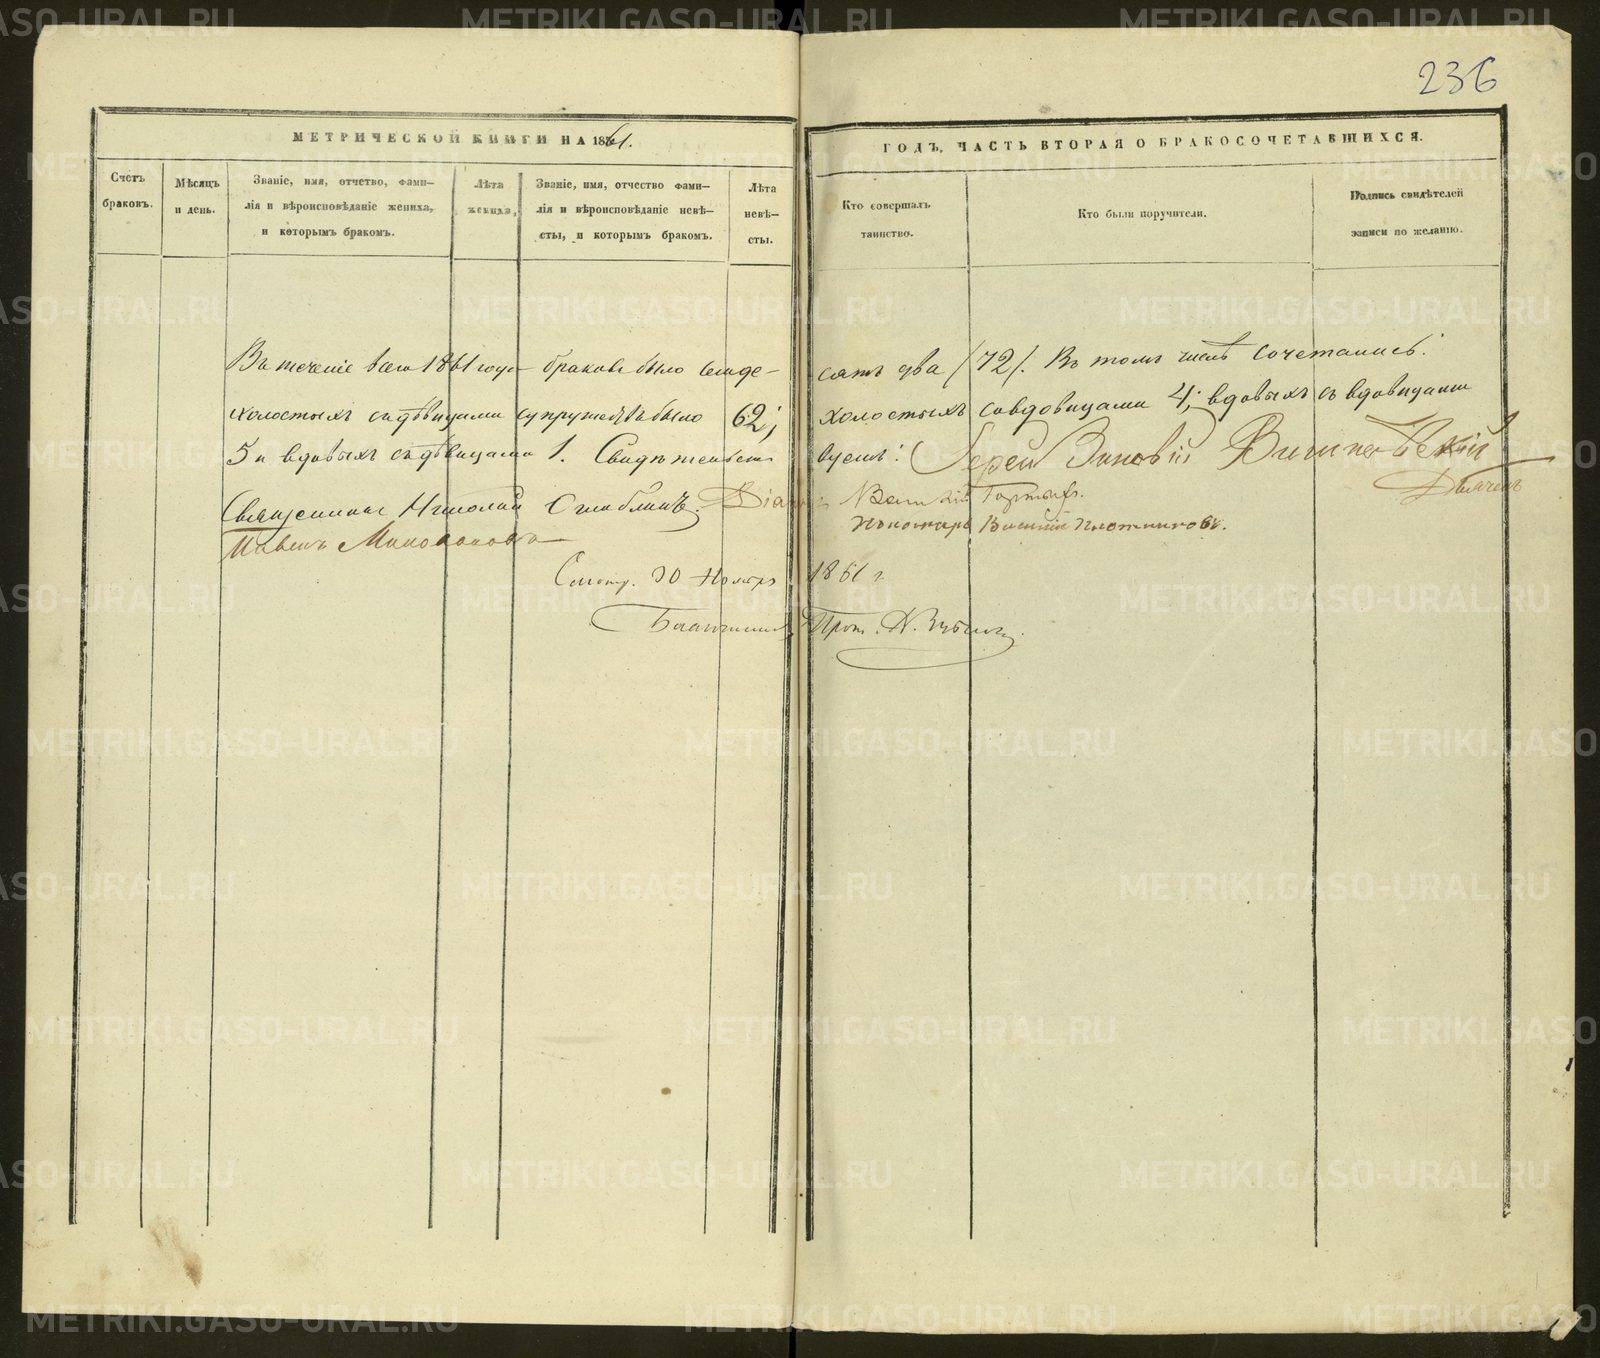 236
МЕТРИЧЕСКОЙ КНИГИ НА 1861.
ГОДЪ, ЧАСТЬ ВТОРАЯ О БРАКОСОЧЕТАВШИХСЯ.
Счетъ браковъ.
Мѣсяцъ и день.
Званіе, имя, отчетво, фами-
лія и вѣроисповѣданіе жениха,
и которымъ бракомъ.
Лѣта жениха.
Званіе, имя, отчество фами-
лія и вѣроисповѣданіе невѣ-
сты, и которымъ бракомъ.
Лѣта
невѣ-
сты.
Кто совершалъ
таинство.
Кто были поручители.
Подпись свидѣтелей
записи по желанію.
Въ теченіе всего 1861 года браковъ было семьде-
сятъ два (72). Въ томъ числѣ сочетались:
холостыхъ съ дѣвицами супружествъ было 62;
холостыхъ со вдовицами 4; вдовыхъ съ вдовицами
5 и вдовыхъ съ дѣвицами 1.
Іерей Зиновій
Священникъ Николай
Пономарь Василій Плотниковъ.
Павелъ
Смотр. 30 Ноября 1861 г.
Благочинный Прот.
METRIKI.GASO-URAL.RU